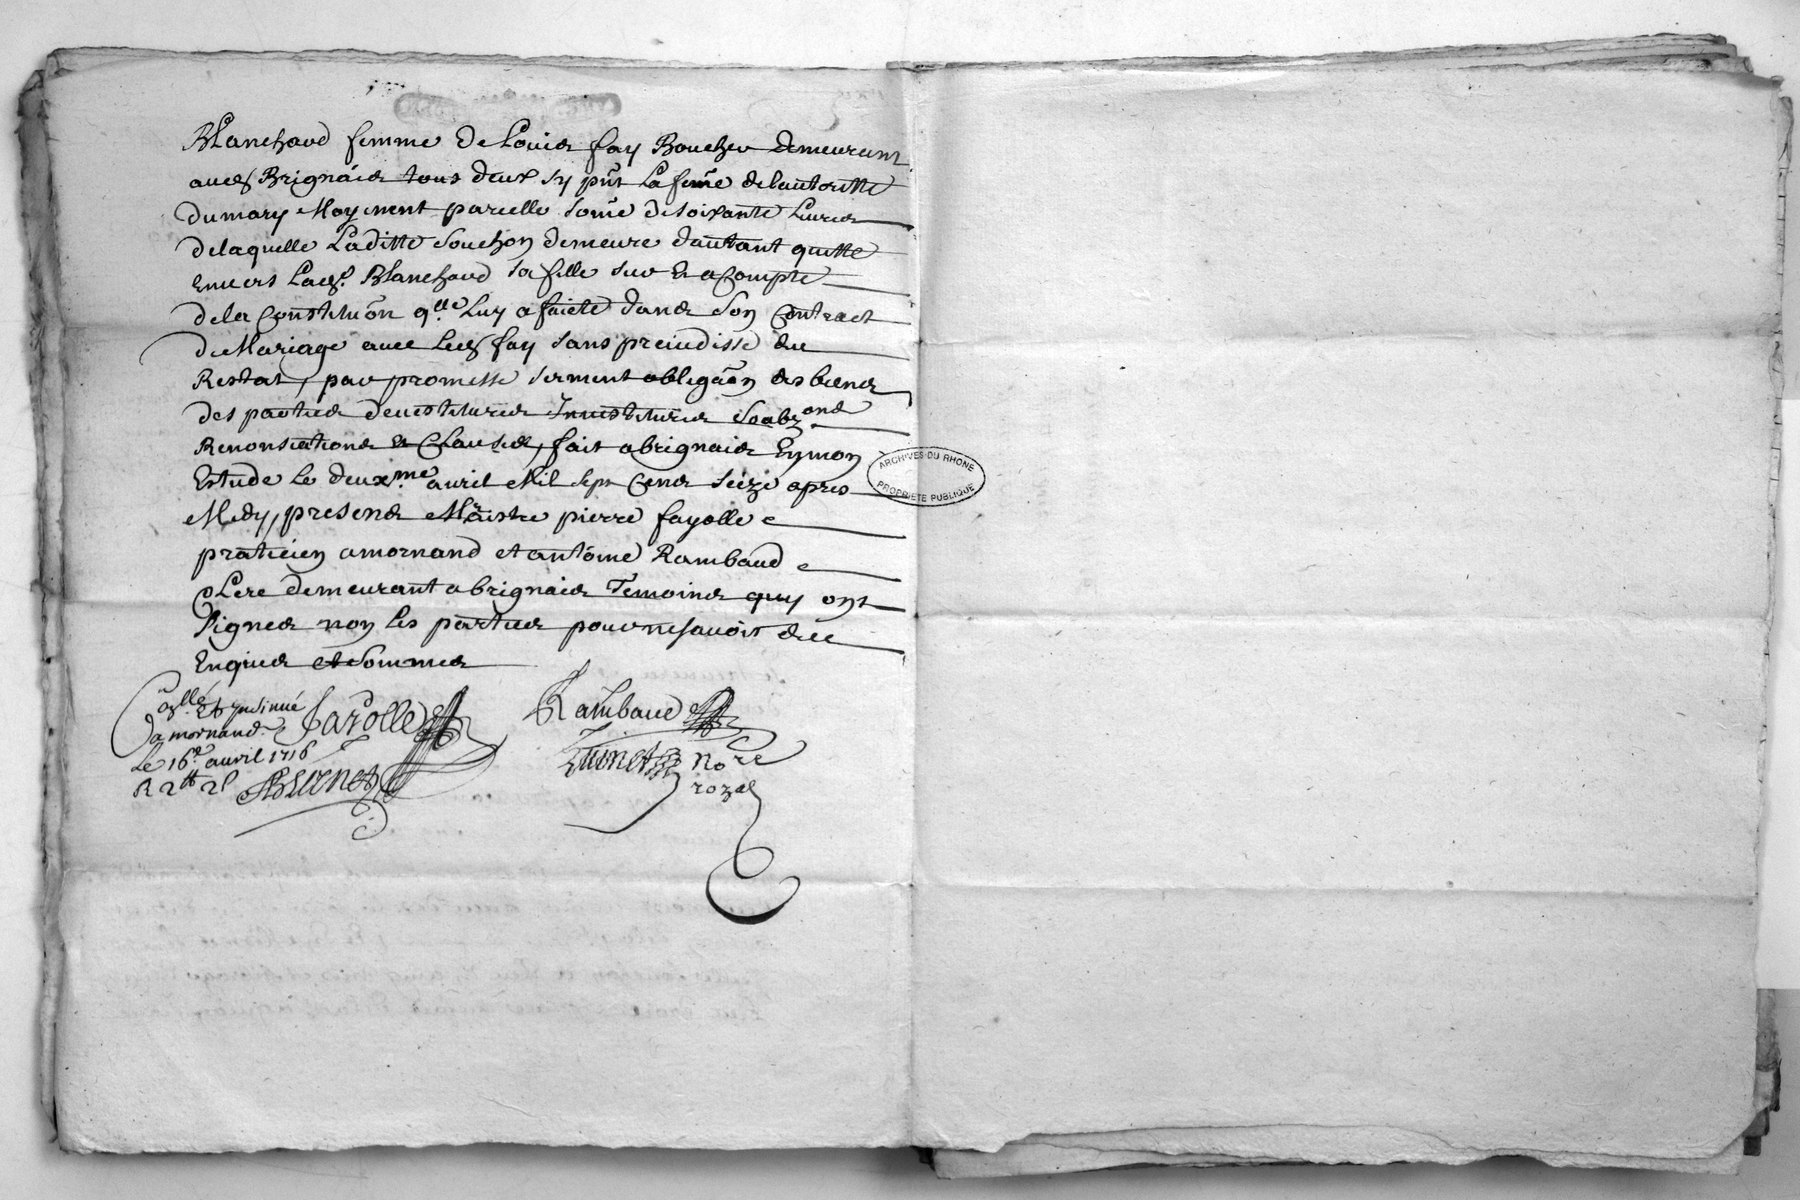 Blanchard femme de Louis fay Boucher demeurant
aud Brignais tous deux sy pnt La feme de lautoritte
du mary Moyenent pareille some de soixante Livres
de laquelle Laditte Souchon demeure dautant quitte
envers Lad. Blanchard sa fille sur Et a Compte
de la Constituon qlle Luy a faicte dans Son Contract
de Mariage avec led fay sans preiudisse du
Restat, par promesse serment obligaon des biens
des parties devestitures Investitures
Renonsiations et Clauses, fait a brignais En mon
Estude Le deuxme avril Mil sept Cens seize apres
Midy, presens Maistre pierre fayolle
praticien a mornand et antoine Rambaud
Clerc demeurant a brignais Temoins quy ont
signes non les parties pour ne savoir de ce
Enquis et Sommes
Collé Et insinué
a mornand
Le 16e avril 1716
R 2tt 2s
fayolle
Rambaud
Nore
rozal
ARCHIVES DU RHONE
PROPRIETE PUBLIQUE